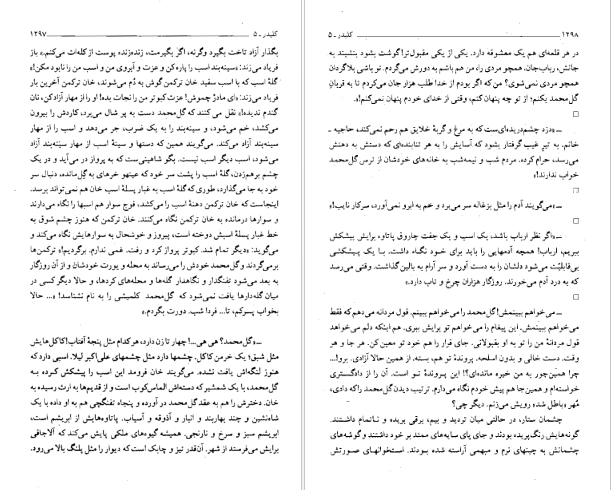 کلیدر ـ ۵ ۱۲۹۷
بگذار آزاد تاخت بگیرد وگرنه، اگر بگیرمت، زنده‌زنده پوست از کله‌ات می‌کنم.» باز
فریاد می‌زند: «سینه‌بند اسب را پاره کن و عزت و آبروی من و اسب من را نابود مکن!»
گلهٔ اسب که با اسب سفید خان ترکمن گوش به دُم می‌شوند، خان ترکمن آخرین بار
فریاد می‌زند: «ای مادرْ چموش! عزت کبوتر من را نجات بده! او را از مهار آزاد کن، نان
گندم ندیده!» نقل می‌کنند که گل‌محمد دست به پر شال می‌برد، کاردش را بیرون
می‌کشد، خم می‌شود، و سینه‌بند را به یک ضرب، جر می‌دهد و اسب را از مهار
سینه‌بند آزاد می‌کند. می‌گویند همین که دستها و سینهٔ اسب از مهار سینه‌بند آزاد
می‌شود، اسب دیگر اسب نیست. بگو شاهینی‌ست که به پرواز در می‌آید و در یک
چشم برهم‌زدن، گلهٔ اسب را پشت سر خود که عینهو خرهای به گِل‌مانده، دنبال سر
خود به جا می‌گذارد، طوری که گلهٔ اسب به غبار پسلهٔ اسب خان هم نمی‌تواند برسد.
اینجاست که خان ترکمن دهنهٔ اسب را می‌کشد، فوج سوار هم اسبها را نگاه می‌دارند
و سوارها درمانده به خان ترکمن نگاه می‌کنند. خان ترکمن که هنوز چشم شوق به
خط غبار پسلهٔ اسبش دوخته است، پیروز و خوشحال به سوارهایش نگاه می‌کند و
می‌گوید: «دیگر تمام شد. کبوتر پرواز کرد و رفت. غمی ندارم. برگردیم!» ترکمن‌ها
برمی‌گردند و گل‌محمد خودش را می‌رساند به محله و یورت خودشان و از آن روزگار
به بعد می‌شود تفنگدار و نگاهدار گله‌ها و محله‌های کردها، و حالا دیگر کسی در
میان گله‌دارها یافت نمی‌شود که گل‌محمد کلمیشی را به نام نشناسد! «... حالا
بخواب پسرکم، تا... فردا شب. دورت بگردم.»
ــ «گل‌محمد؟ هی هی...! چهار تا زن دارد، هرکدام مثل پنجهٔ آفتاب! کاکل‌هایش
مثل شبق؛ یک خرمن کاکل. چشمها دارد مثل چشمهای علی‌اکبر لیلا. اسبی دارد که
هنوز لنگه‌اش یافت نشده. می‌گویند خان فرومد این اسب را پیشکش کرده به
گل‌محمد، با یک شمشیر که دسته‌اش الماس‌کوب است و از قدیم‌ها به ارث رسیده به
خان. دخترش را هم به عقد گل‌محمد در آورده و پنجاه تفنگچی هم به او داده با یک
شاه‌نشین و چند بهاربند و انبار و آذوقه و آسیاب. پاتاوه‌هایش از ابریشم است،
ابریشم سبز و سرخ و نارنجی. همیشه گیوه‌های ملکی پایش می‌کند که آلاجاقی
برایش می‌فرستد از شهر. آن‌قدر تیز و چابک است که دیوار را مثل پلنگ بالا می‌رود.
۱۲۹۸ کلیدر ـ ۵
در هر قلعه‌ای هم یک معشوقه دارد. یکی از یکی مقبول‌تر! گوشت بشود بنشیند به
جانش، رباب‌جان. همچو مردی را، من هم باشم به دورش می‌گردم. تو باشی بلاگردان
همچو مردی نمی‌شوی؟ من که اگر بودم از خدا طلب هزار جان می‌کردم تا به قربانِ
گل‌محمد بکنم؛ از تو چه پنهان کنم، وقتی از خدای خودم پنهان نمی‌کنم!».
□
ــ «دزد چشم‌دریده‌ای‌ست که به مرغ و گربهٔ خلایق هم رحم نمی‌کند، حاجیه ـ
خانم. به تیر غیب گرفتار بشود که آسایش را به هر تنابنده‌ای که دستش به دهنش
می‌رسد، حرام کرده. مردم شب و نیمه‌شب به خانه‌های خودشان از ترس گل‌محمد
خواب ندارند!»
□
ــ «می‌گویند آدم را مثل بزغاله سر می‌برد و خم به ابرو نمی‌آورد، سرکار نایب!»
□
ــ «اگر نظر ارباب باشد، یک اسب و یک جفت چاروق پاتاوه برایش پیشکش
ببریم، ارباب! همچه آدمهایی را باید برای خود نگاه داشت. با یک پیشکشی
بی‌قابلیّت می‌شود دلشان را به دست آورد و سر آرام به بالین گذاشت. وقتی می‌رسد
که به درد آدم می‌خورند. روزگار هزاران چرخ و تاب دارد.»
□
ــ «می‌خواهم ببینمش! گل‌محمد را می‌خواهم ببینم. قول مردانه می‌دهم که فقط
می‌خواهم ببینمش. این پیغام را می‌خواهم تو برایش ببری. هم اینکه دلم می‌خواهد
قول مردانهٔ من را تو به او بقبولانی. جای قرار را هم خود تو معین کن. هر جا و هر
وقت. دست خالی و بدون اسلحه. پروندهٔ تو هم، بسته. از همین حالا آزادی. برو!...
چرا همین‌جور به من خیره مانده‌ای؟! این پروندهٔ تـو اسـت. آن را از دادگستری
خواسته‌ام و همین‌جا هم پیش خودم نگاه می‌دارم. ترتیب دیدن گل‌محمد را که دادی،
مُهر «باطل شد» رویش می‌زنم. دیگر چی؟
چشمان ستار، در حالتی میان تردید و بیم، برقی بریده و نـاتمام داشتند.
گونه‌هایش رنگ‌پریده بودند و جای پای سایه‌های ممتد بر خود داشتند و گوشه‌های
چشمانش به چینهای نرم و مبهمی آراسته شده بـودند. استخوانهای صـورتش